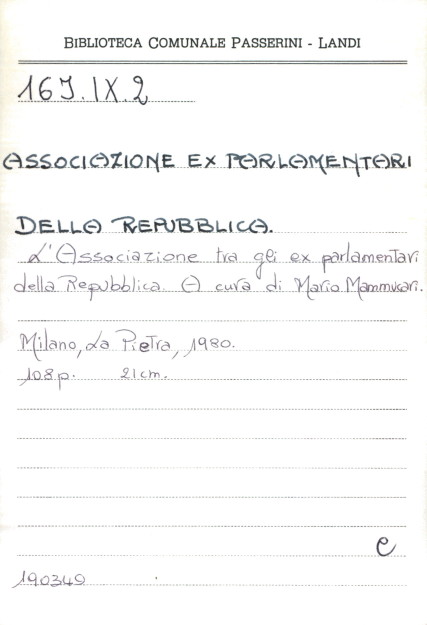 BIBLIOTECA COMUNALE PASSERINI - LANDI
16J.IX.2
ASSOCIAZIONE EX PARLAMENTARI
DELLA REPUBBLICA.
L'Associazione tra gli ex parlamentari
della Repubblica. A cura di Mario Mammucari.
Milano, La Pietra, 1980.
108 p. 21 cm.
e
190349